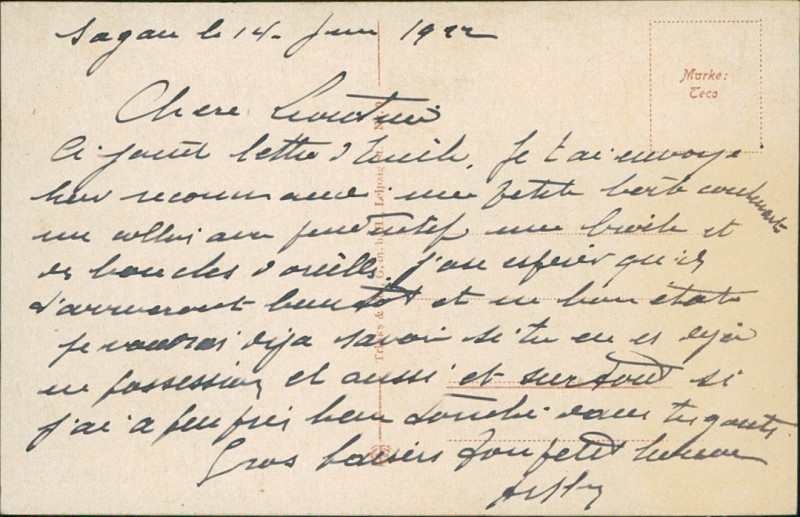 Sagan le 14. Juin 1922
Marke:
Teco
Chere
Ci joint lettre d'Emile, Je t'ai envoye
hier recommandé une petite boite contenant
un collier avec pendentif une broche et
des boucles d'oreilles. J'ose esperer qu'ils
t'arriveront bientot et en bon état
je voudrai deja savoir si tu en es deja
en possession et aussi et surtout si
j'ai a peu pres bien touché dans tes gouts.
Gros baisers Ton petit
Trinks & Co. G. m. b. H. Leipzig